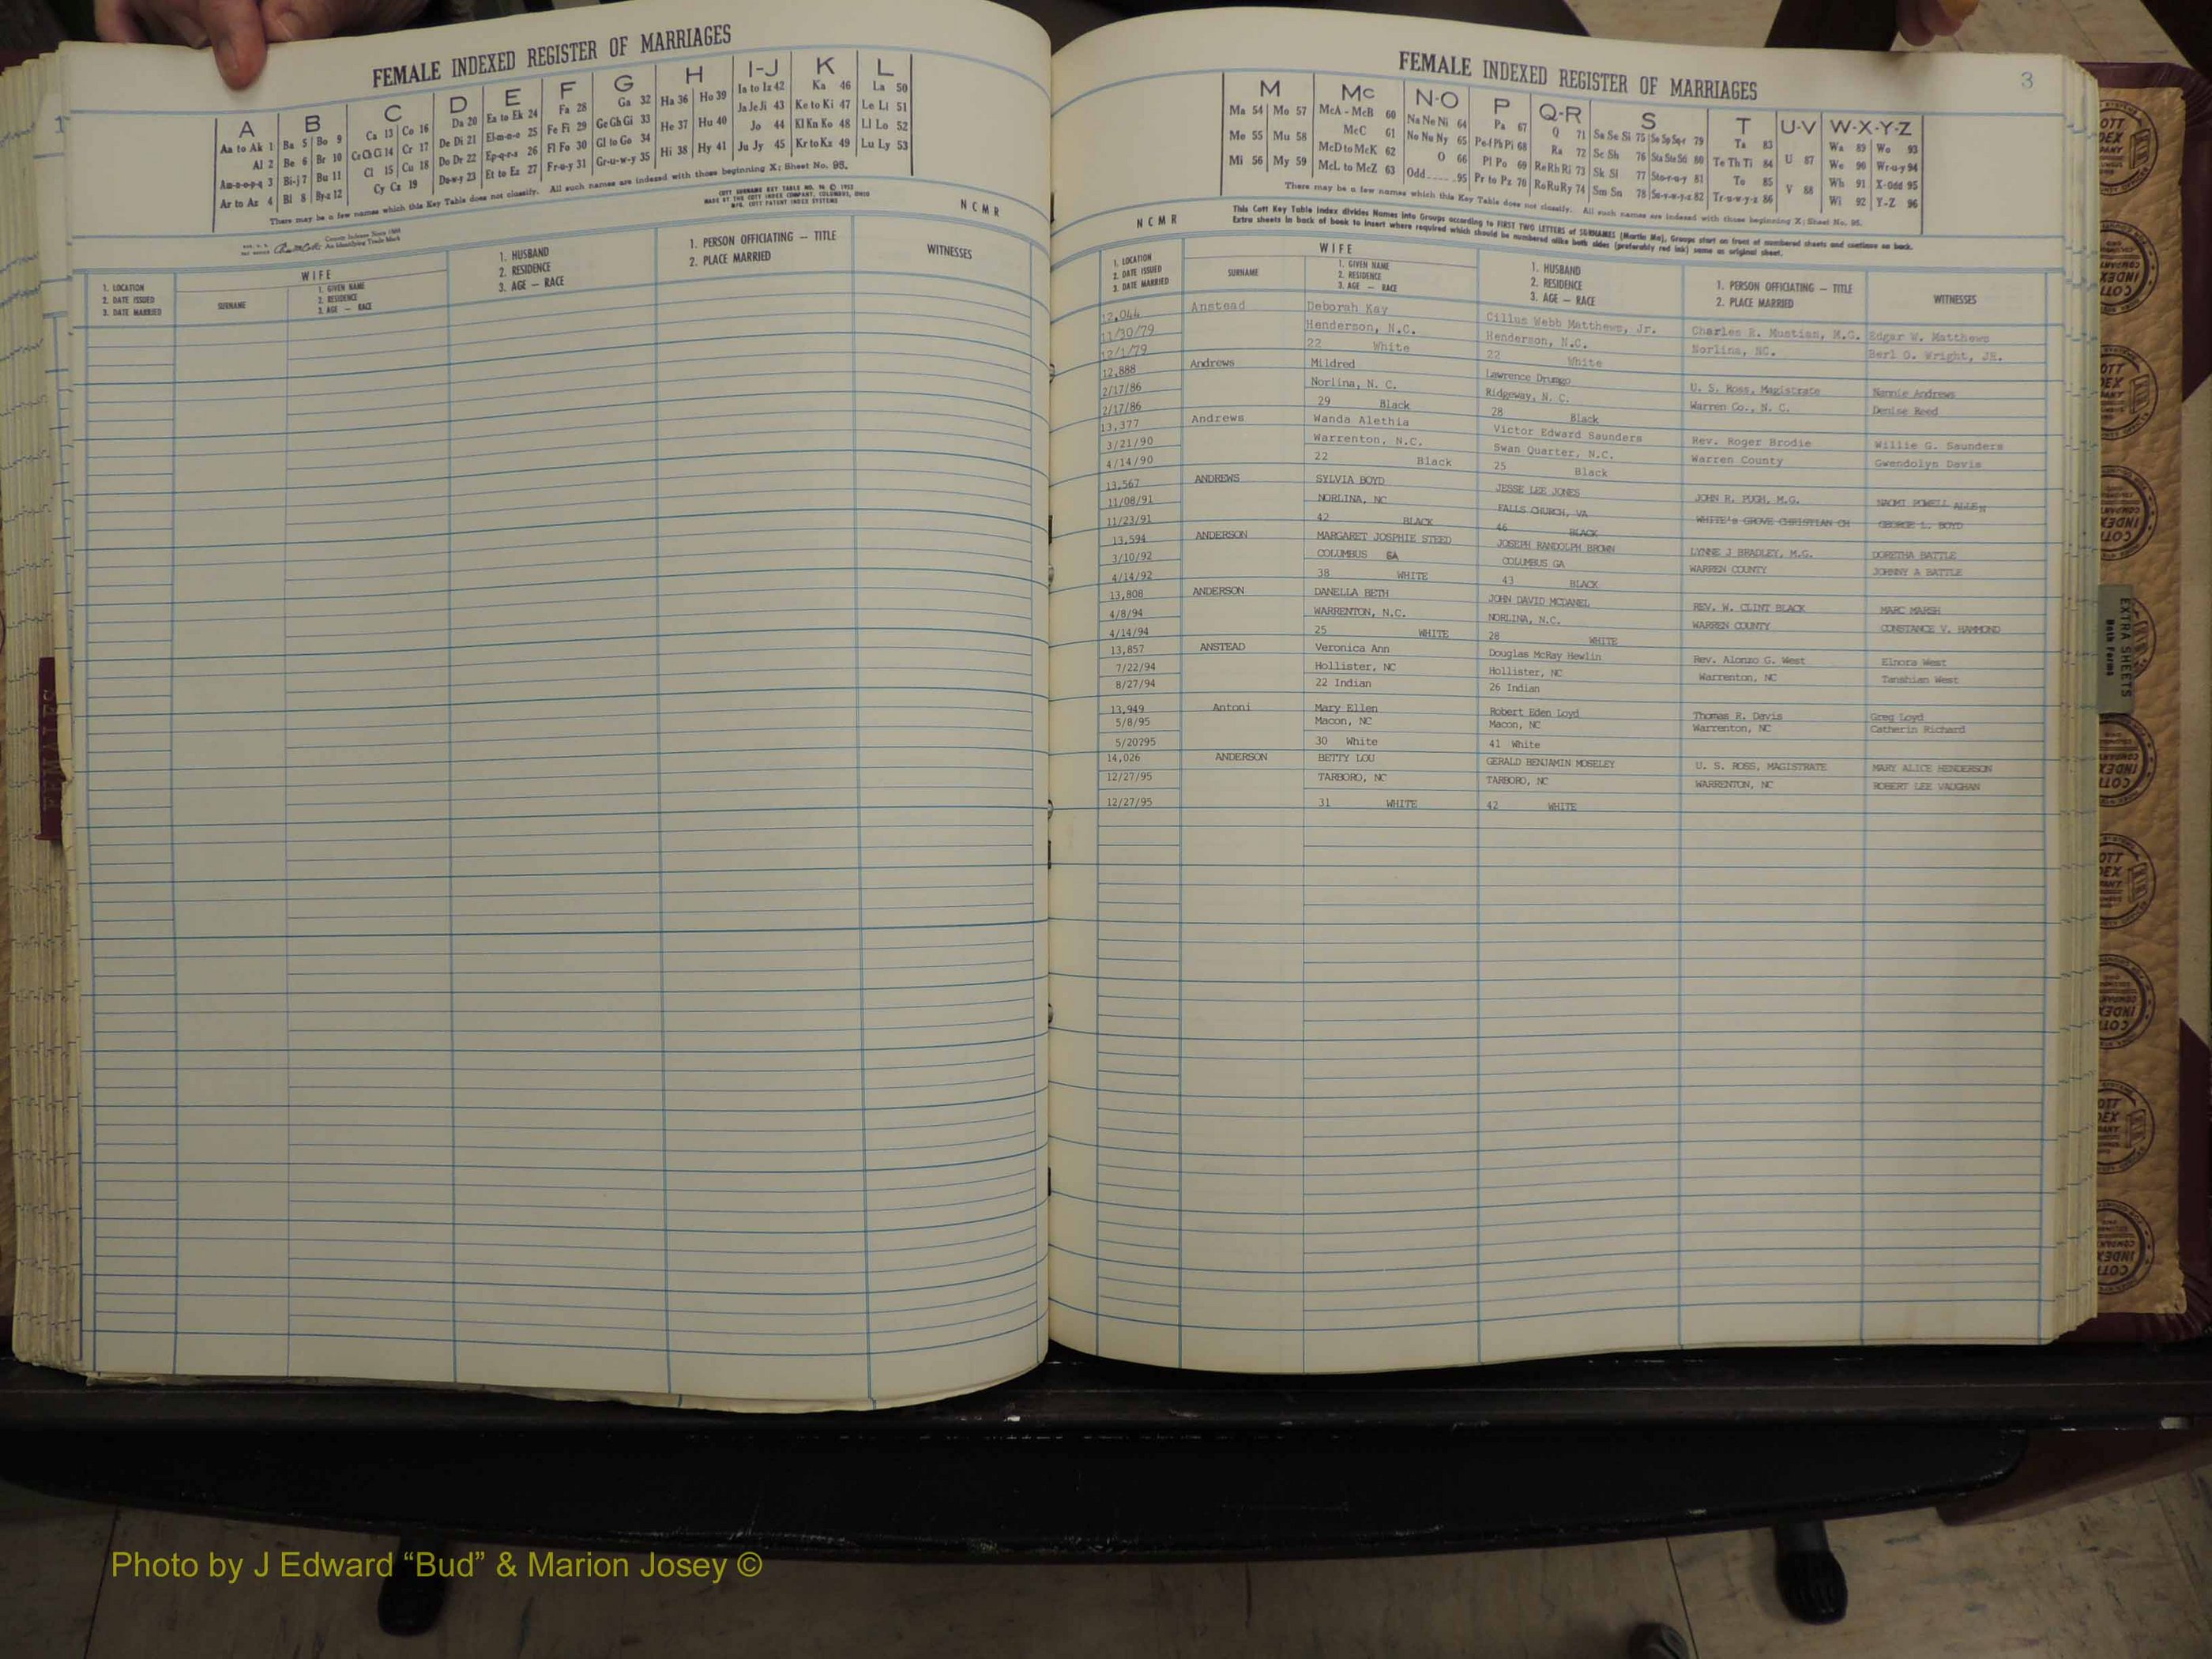 FEMALE INDEXED REGISTER OF MARRIAGES
A B C D E F G H I-J K L
Aa to Ak 1 Ba 5 Bo 9 Ca 13 Co 16 Da 20 Ea to Ek 24 Fa 28 Ga 32 Ha 36 Ho 39 Ia to Iz 42 Ka 46 La 50
Al 2 Be 6 Br 10 Ce Ch Ci 14 Cr 17 De Di 21 El-m-n-o 25 Fe Fi 29 Ge Gh Gi 33 He 37 Hu 40 Ja Je Ji 43 Ke to Ki 47 Le Li 51
Am-n-o-p-q 3 Bi-j 7 Bu 11 Cl 15 Cu 18 Do Dr 22 Ep-q-r-s 26 Fl Fo 30 Gl to Go 34 Hi 38 Hy 41 Jo 44 Kl Kn Ko 48 Ll Lo 52
Ar to Az 4 Bl 8 By-z 12 Cy Cz 19 Du-w-y 23 Et to Ez 27 Fr-u-y 31 Gr-u-w-y 35 Ju Jy 45 Kr to Kz 49 Lu Ly 53
There may be a few names which this Key Table does not classify. All such names are indexed with those beginning X; Sheet No. 95.
COTT SURNAME KEY TABLE NO. 96 © 1952
MADE BY THE COTT INDEX COMPANY, COLUMBUS, OHIO
MFG. COTT PATENT INDEX SYSTEMS
N C M R
County Indexes Since 1888
An Identifying Trade Mark
1. LOCATION
2. DATE ISSUED
3. DATE MARRIED
WIFE
SURNAME
1. GIVEN NAME
2. RESIDENCE
3. AGE — RACE
1. HUSBAND
2. RESIDENCE
3. AGE — RACE
1. PERSON OFFICIATING — TITLE
2. PLACE MARRIED
WITNESSES
FEMALE INDEXED REGISTER OF MARRIAGES
3
M Mc N-O P Q-R S T U-V W-X-Y-Z
Ma 54 Mo 57 McA - McB 60 Na Ne Ni 64 Pa 67 Q 71 Sa Se Si 75 So Sp Sq-r 79 Ta 83 U 87 Wa 89 Wo 93
Me 55 Mu 58 McC 61 No Nu Ny 65 Pe-f Ph Pi 68 Ra 72 Sc Sh 76 Sta Ste Sti 80 Te Th Ti 84 V 88 We 90 Wr-u-y 94
Mi 56 My 59 McD to McK 62 O 66 Pl Po 69 Re Rh Ri 73 Sk Sl 77 Sto-r-u-y 81 To 85 Wh 91 X-Odd 95
McL to McZ 63 Odd 95 Pr to Pz 70 Ro Ru Ry 74 Sm Sn 78 Su-v-w-y-z 82 Tr-u-w-y-z 86 Wi 92 Y-Z 96
There may be a few names which this Key Table does not classify. All such names are indexed with those beginning X; Sheet No. 95.
N C M R
This Cott Key Table Index divides Names into Groups according to FIRST TWO LETTERS of SURNAMES (Martin Ma), Groups start on front of numbered sheets and continue on back.
Extra sheets in back of book to insert where required which should be numbered alike both sides (preferably red ink) same as original sheet.
1. LOCATION
2. DATE ISSUED
3. DATE MARRIED
WIFE
SURNAME
1. GIVEN NAME
2. RESIDENCE
3. AGE — RACE
1. HUSBAND
2. RESIDENCE
3. AGE — RACE
1. PERSON OFFICIATING — TITLE
2. PLACE MARRIED
WITNESSES
12,044 Anstead Deborah Kay Cillus Webb Matthews, Jr. Charles R. Mustian, M.G. Edgar W. Matthews
11/30/79 Henderson, N.C. Henderson, N.C. Norlina, NC. Berl O. Wright, JR.
12/1/79 22 White 22 White
12,888 Andrews Mildred Lawrence Drumgo U. S. Ross, Magistrate Nannie Andrews
2/17/86 Norlina, N. C. Ridgeway, N. C. Warren Co., N. C. Denise Reed
2/17/86 29 Black 28 Black
13,377 Andrews Wanda Alethia Victor Edward Saunders Rev. Roger Brodie Willie G. Saunders
3/21/90 Warrenton, N.C. Swan Quarter, N.C. Warren County Gwendolyn Davis
4/14/90 22 Black 25 Black
13,567 ANDREWS SYLVIA BOYD JESSE LEE JONES JOHN R. PUGH, M.G. NAOMI POWELL ALLEN
11/08/91 NORLINA, NC FALLS CHURCH, VA WHITE's GROVE CHRISTIAN CH GEORGE L. BOYD
11/23/91 42 BLACK 46 BLACK
13,594 ANDERSON MARGARET JOSPHIE STEED JOSEPH RANDOLPH BROWN LYNNE J BRADLEY, M.G. DORETHA BATTLE
3/10/92 COLUMBUS GA COLUMBUS GA WARREN COUNTY JOHNNY A BATTLE
4/14/92 38 WHITE 43 BLACK
13,808 ANDERSON DANELLA BETH JOHN DAVID MCDANEL REV. W. CLINT BLACK MARC MARSH
4/8/94 WARRENTON, N.C. NORLINA, N.C. WARREN COUNTY CONSTANCE V. HAMMOND
4/14/94 25 WHITE 28 WHITE
13,857 ANSTEAD Veronica Ann Douglas McRay Hewlin Rev. Alonzo G. West Elnora West
7/22/94 Hollister, NC Hollister, NC Warrenton, NC Tanshian West
8/27/94 22 Indian 26 Indian
13,949 Antoni Mary Ellen Robert Eden Loyd Thomas R. Davis Greg Loyd
5/8/95 Macon, NC Macon, NC Warrenton, NC Catherin Richard
5/20?95 30 White 41 White
14,026 ANDERSON BETTY LOU GERALD BENJAMIN MOSELEY U. S. ROSS, MAGISTRATE MARY ALICE HENDERSON
12/27/95 TARBORO, NC TARBORO, NC WARRENTON, NC ROBERT LEE VAUGHAN
12/27/95 31 WHITE 42 WHITE
EXTRA SHEETS
Both Forms
Photo by J Edward “Bud” & Marion Josey ©